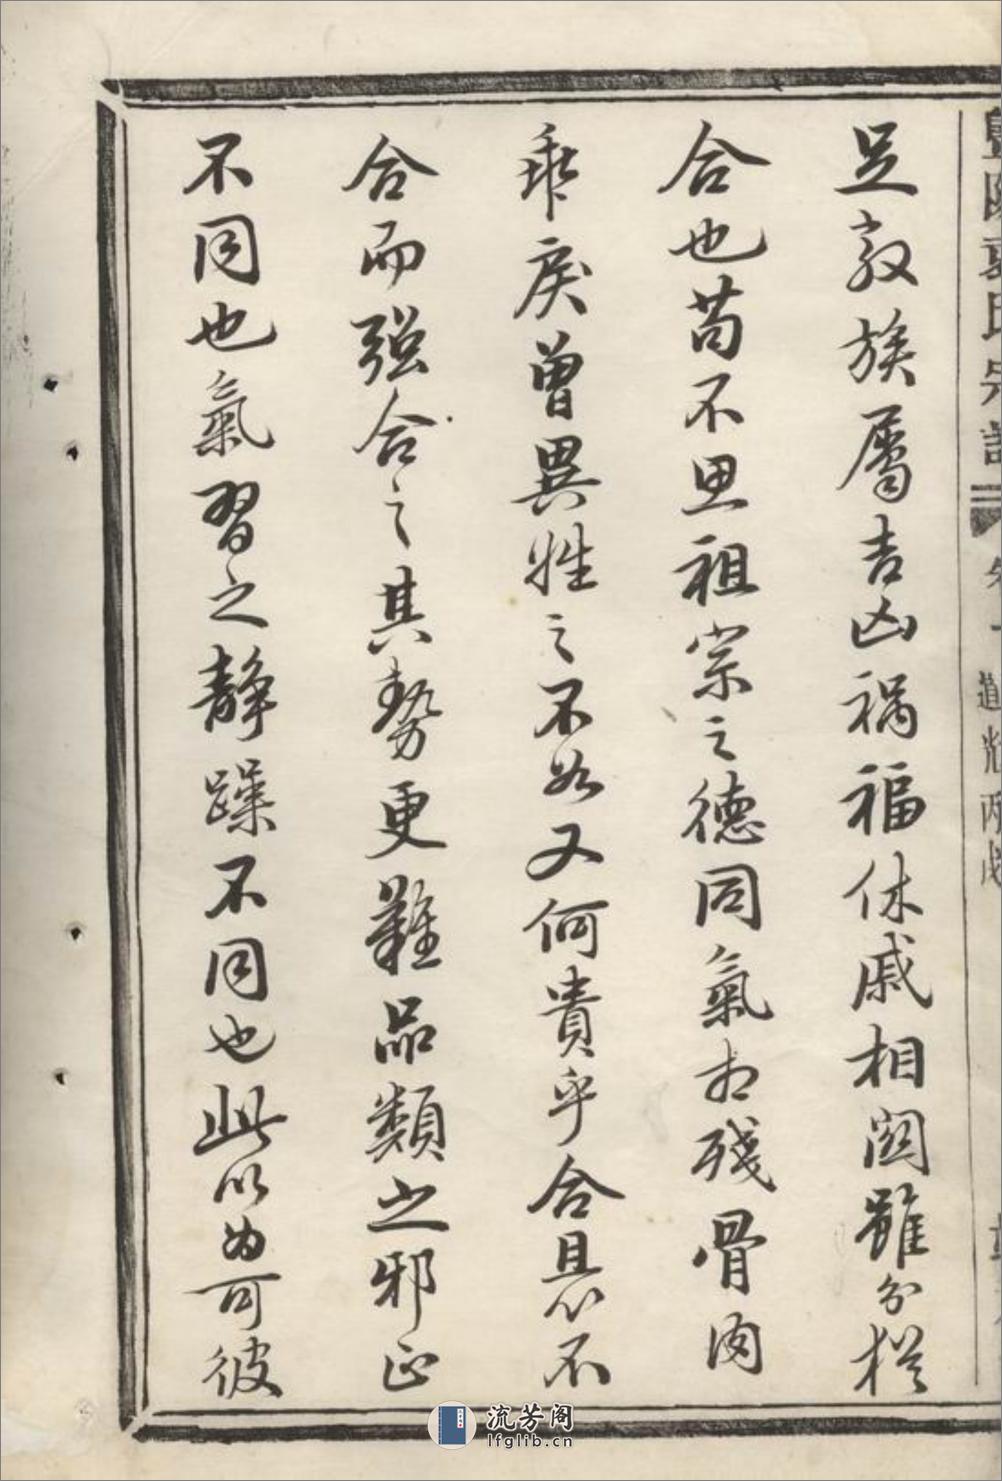 氏宗譜
卷一
道光丙戌
足敦族屬吉凶禍福休戚相關雖分猶
合也苟不思祖宗之德同氣相殘骨肉
乖戾曾異姓之不如又何貴乎合且以不
合而强合之其勢更難品類之邪正
不同也氣習之靜躁不同也此以為可彼
流芳阁
lfglib.cn